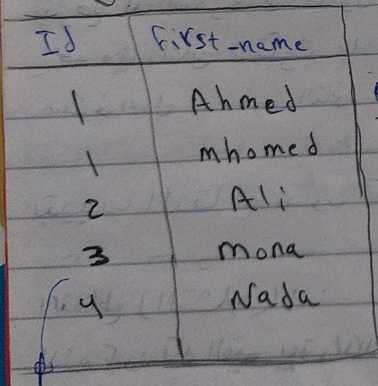 Id First_name
1 Ahmed
1 mhomed
2 Ali
3 Mona
4 Nada